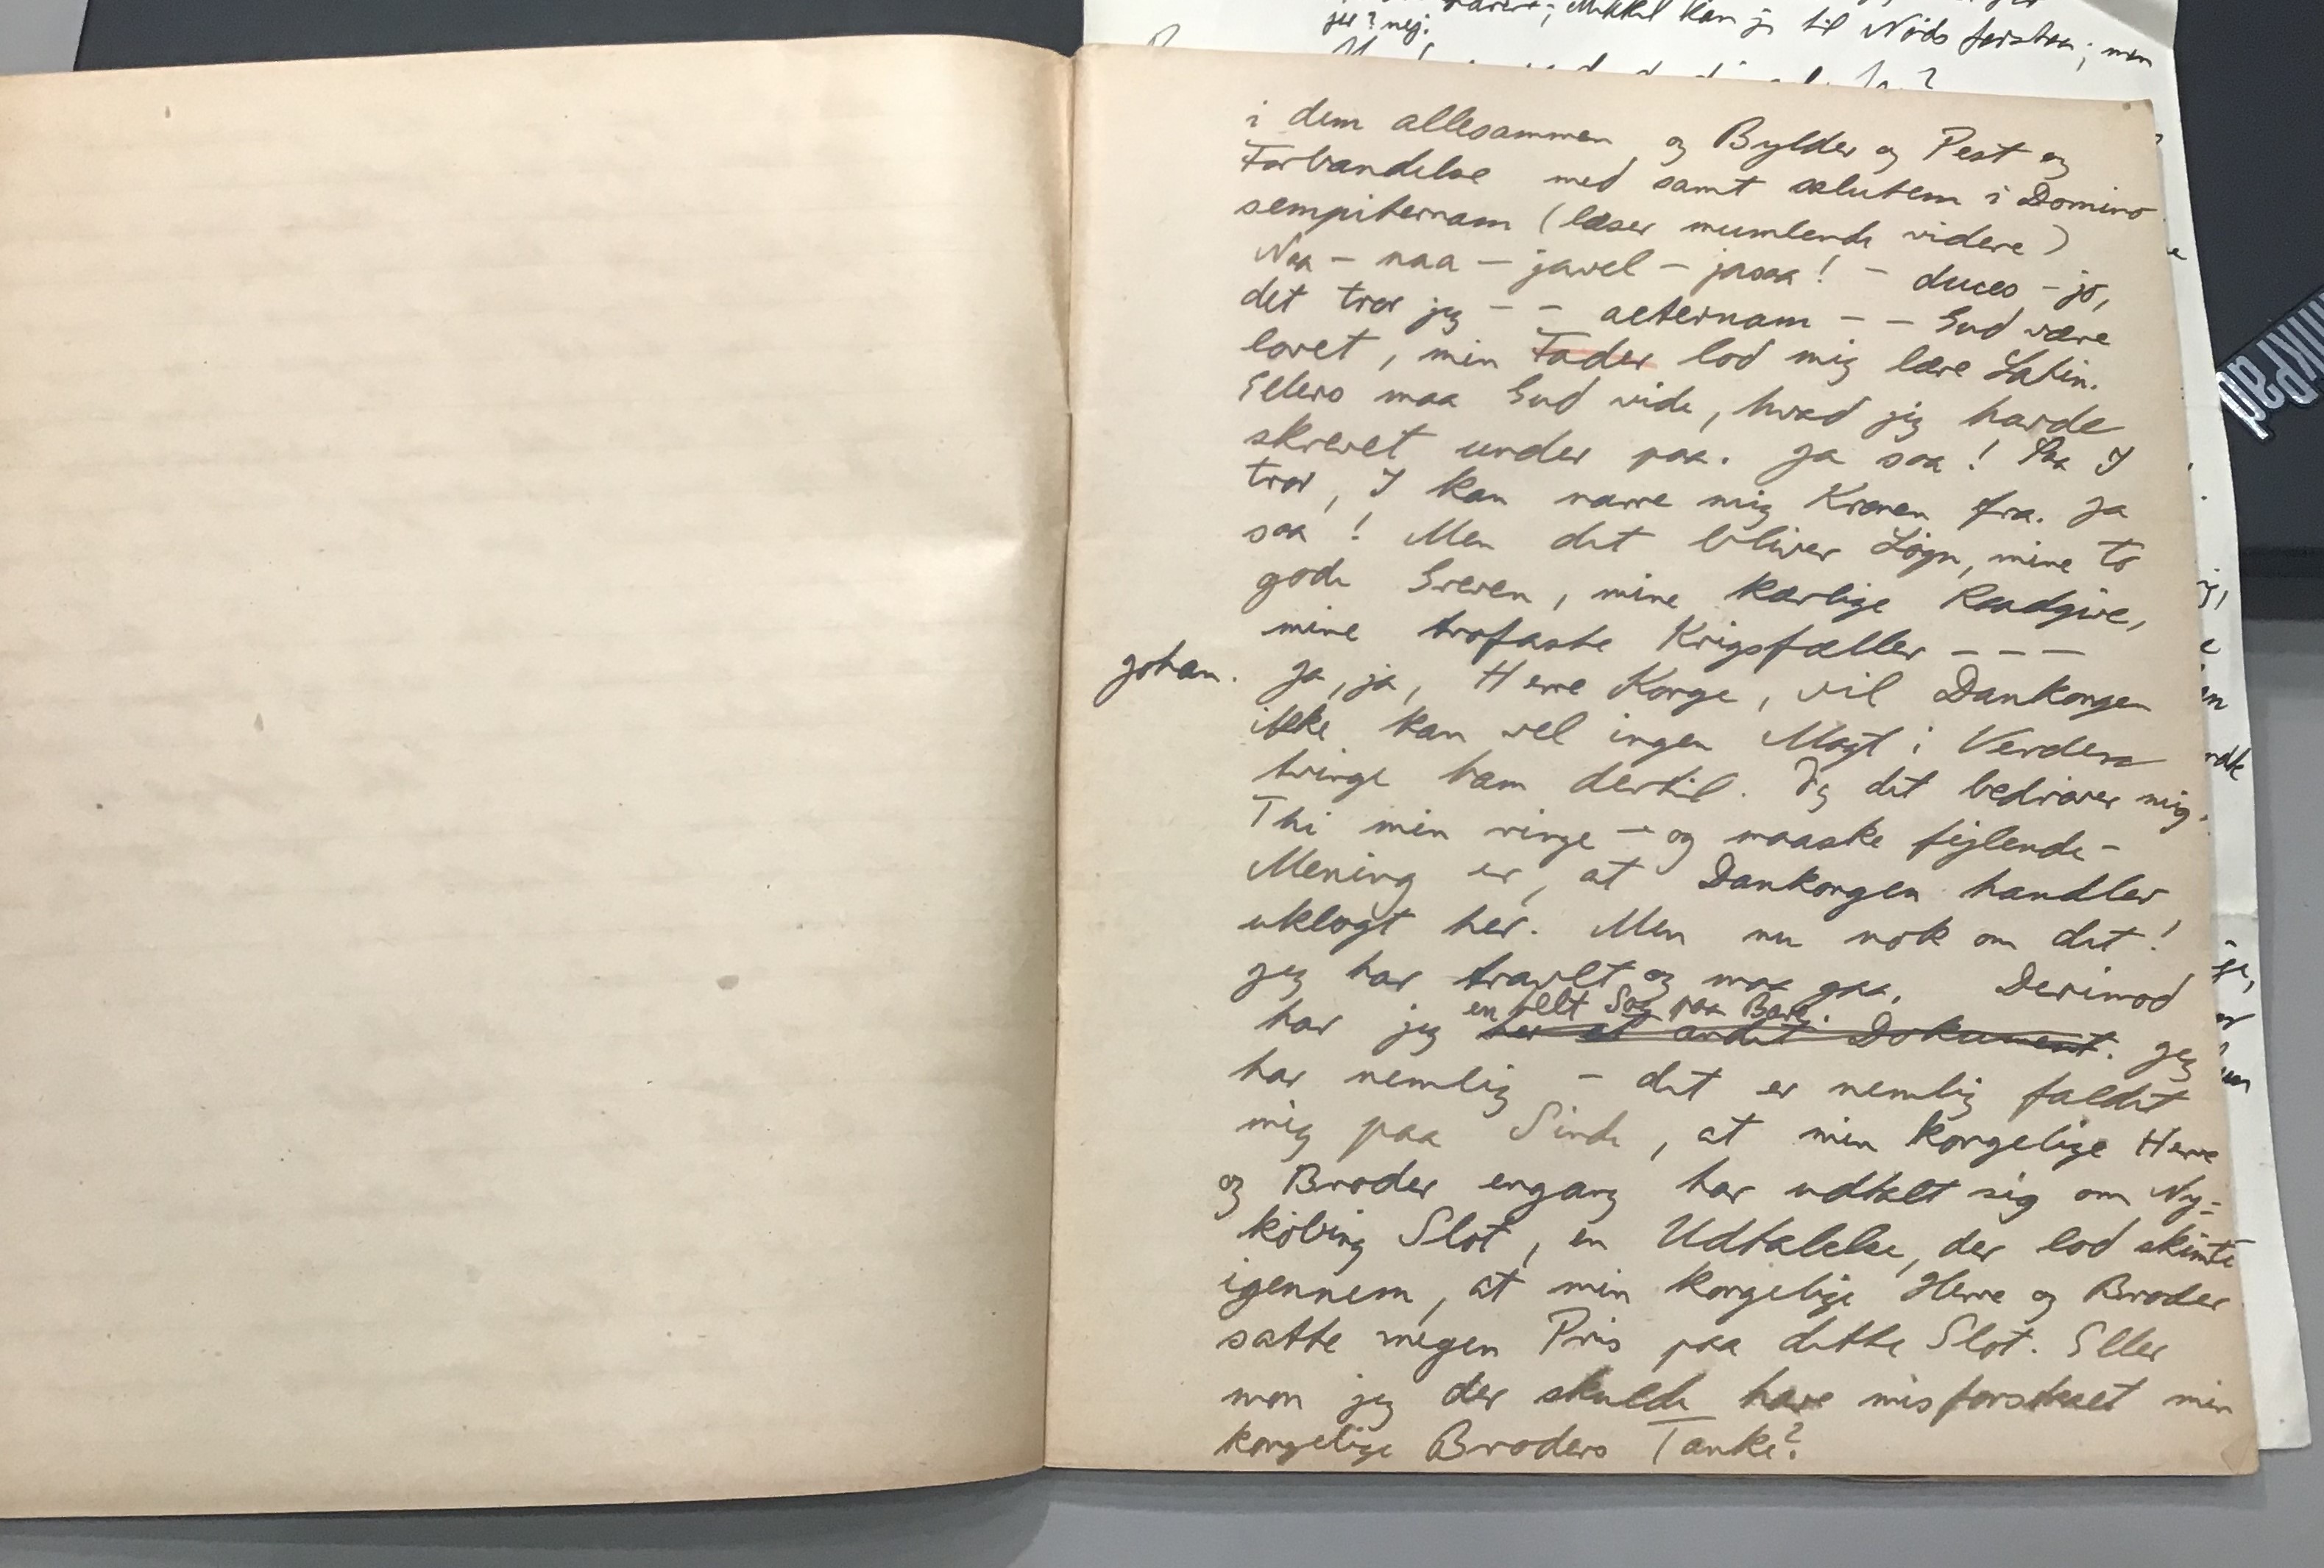 jer? nej.
Mikkel kan jo til Nöds forstaa; men
i dem allesammen og Bylder og Pest og
Forbandelse med samt salutem i Domino
sempiternam (læser mumlende videre)
Naa – naa – javel – jasaa! – duces – jo,
det tror jeg – – aeternam – – Gud være
lovet, min Fader lod mig lære Latin.
Ellers maa Gud vide, hvad jeg havde
skrevet under paa. Ja saa! Saa I
tror, I kan narre mig Kronen fra. Ja
saa! Men det bliver Løgn, mine to
gode Grever, mine kærlige Raadgive,
mine trofaste Krigsfæller – – –
Johan. Ja, ja, Herre Konge, vil Dankongen
ikke kan vel ingen Magt i Verden
tvinge ham dertil. Og det bedrøver mig.
Thi min ringe – og maaske fejlende –
Mening er, at Dankongen handler
uklogt her. Men nu nok om det!
Jeg har travlt og maa gaa. Derimod
en helt Sag paa
har jeg her et andet Dokument. Jeg
har nemlig – det er nemlig faldet
mig paa Sinde, at min kongelige Herre
og Broder engang har udtalt sig om Ny=
köbing Slot, en Udtalelse, der lod skimte
igennem, at min kongelige Herre og Broder
satte megen Pris paa dette Slot. Eller
mon jeg der skulde have misforstaaet min
kongelige Broders Tanke?